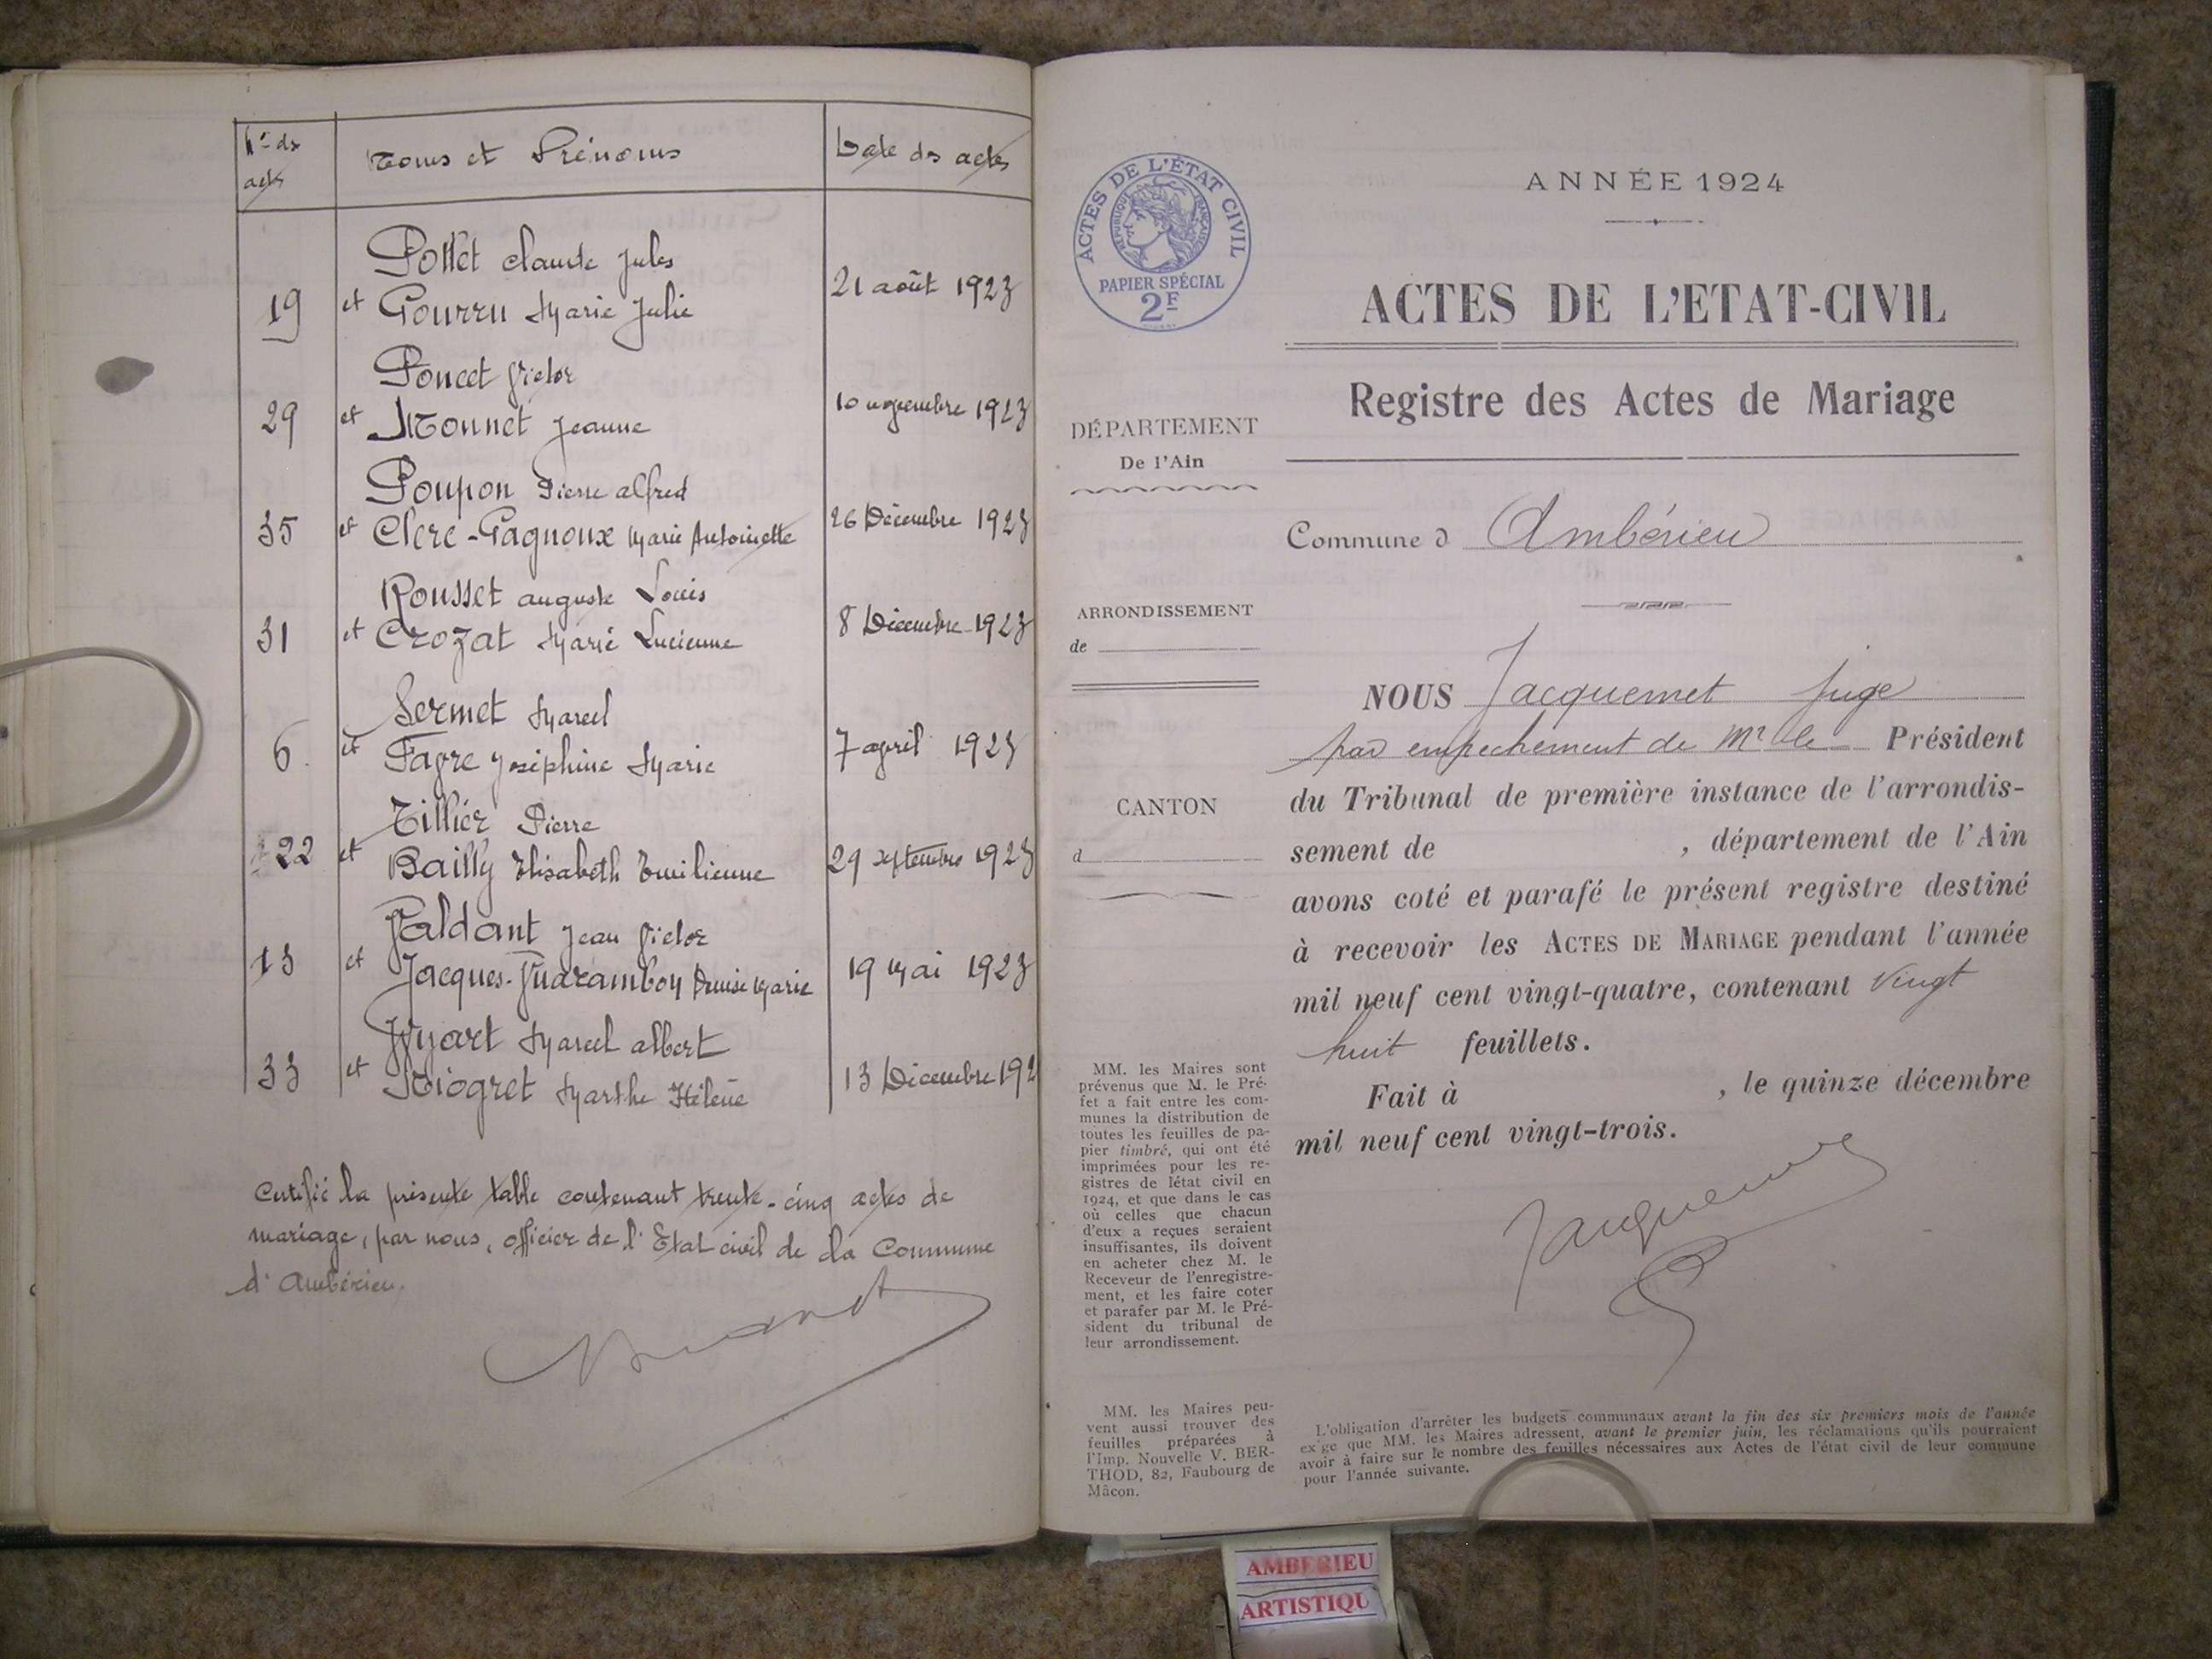 Nos des
actes
Noms et Prénoms
Date des actes
Pottet Claude Jules
19 et Gourru Marie Julie 21 août 1923
Poncet Victor
29 et Monnet Jeanne 10 novembre 1923
Poupon Pierre Alfred
35 et Clerc-Gagnoux Marie Antoinette 26 Décembre 1923
Rousset Auguste Louis
31 et Crozat Marie Lucienne 8 Décembre 1923
Sermet Marcel
6. et Favre Joséphine Marie 7 avril 1923
Tillier Pierre
22 et Bailly Elisabeth Emilienne 29 septembre 1923
Valdant Jean Victor
13 et Jacques-Vuarambon Denise Marie 19 Mai 1923
Wyart Marcel Albert
33 et Niogret Marthe Hélène 13 Décembre 192
Certifié la présente table contenant trente-cinq actes de
mariage, par nous, officier de l'Etat civil de la Commune
d'Ambérieu.
ACTES DE L'ÉTAT CIVIL
RÉPUBLIQUE FRANÇAISE
PAPIER SPÉCIAL
2F
ANNÉE 1924
ACTES DE L'ETAT-CIVIL
Registre des Actes de Mariage
DÉPARTEMENT
De l'Ain
Commune d Ambérieu
ARRONDISSEMENT
de
CANTON
d
NOUS Jacquemet Juge
par empechement de Mr le Président
du Tribunal de première instance de l'arrondis-
sement de , département de l'Ain
avons coté et parafé le présent registre destiné
à recevoir les ACTES DE MARIAGE pendant l'année
mil neuf cent vingt-quatre, contenant vingt
huit feuillets.
Fait à , le quinze décembre
mil neuf cent vingt-trois.
Jacquemet
MM. les Maires sont
prévenus que M. le Pré-
fet a fait entre les com-
munes la distribution de
toutes les feuilles de pa-
pier timbré, qui ont été
imprimées pour les re-
gistres de létat civil en
1924, et que dans le cas
où celles que chacun
d'eux a reçues seraient
insuffisantes, ils doivent
en acheter chez M. le
Receveur de l'enregistre-
ment, et les faire coter
et parafer par M. le Pré-
sident du tribunal de
leur arrondissement.
MM. les Maires peu-
vent aussi trouver des
feuilles préparées à
l'Imp. Nouvelle V. BER-
THOD, 82, Faubourg de
Mâcon.
L'obligation d'arrêter les budgets communaux avant la fin des six premiers mois de l'année
exige que MM. les Maires adressent, avant le premier juin, les réclamations qu'ils pourraient
avoir à faire sur le nombre des feuilles nécessaires aux Actes de l'état civil de leur commune
pour l'année suivante.
AMBERIEU
ARTISTIQU